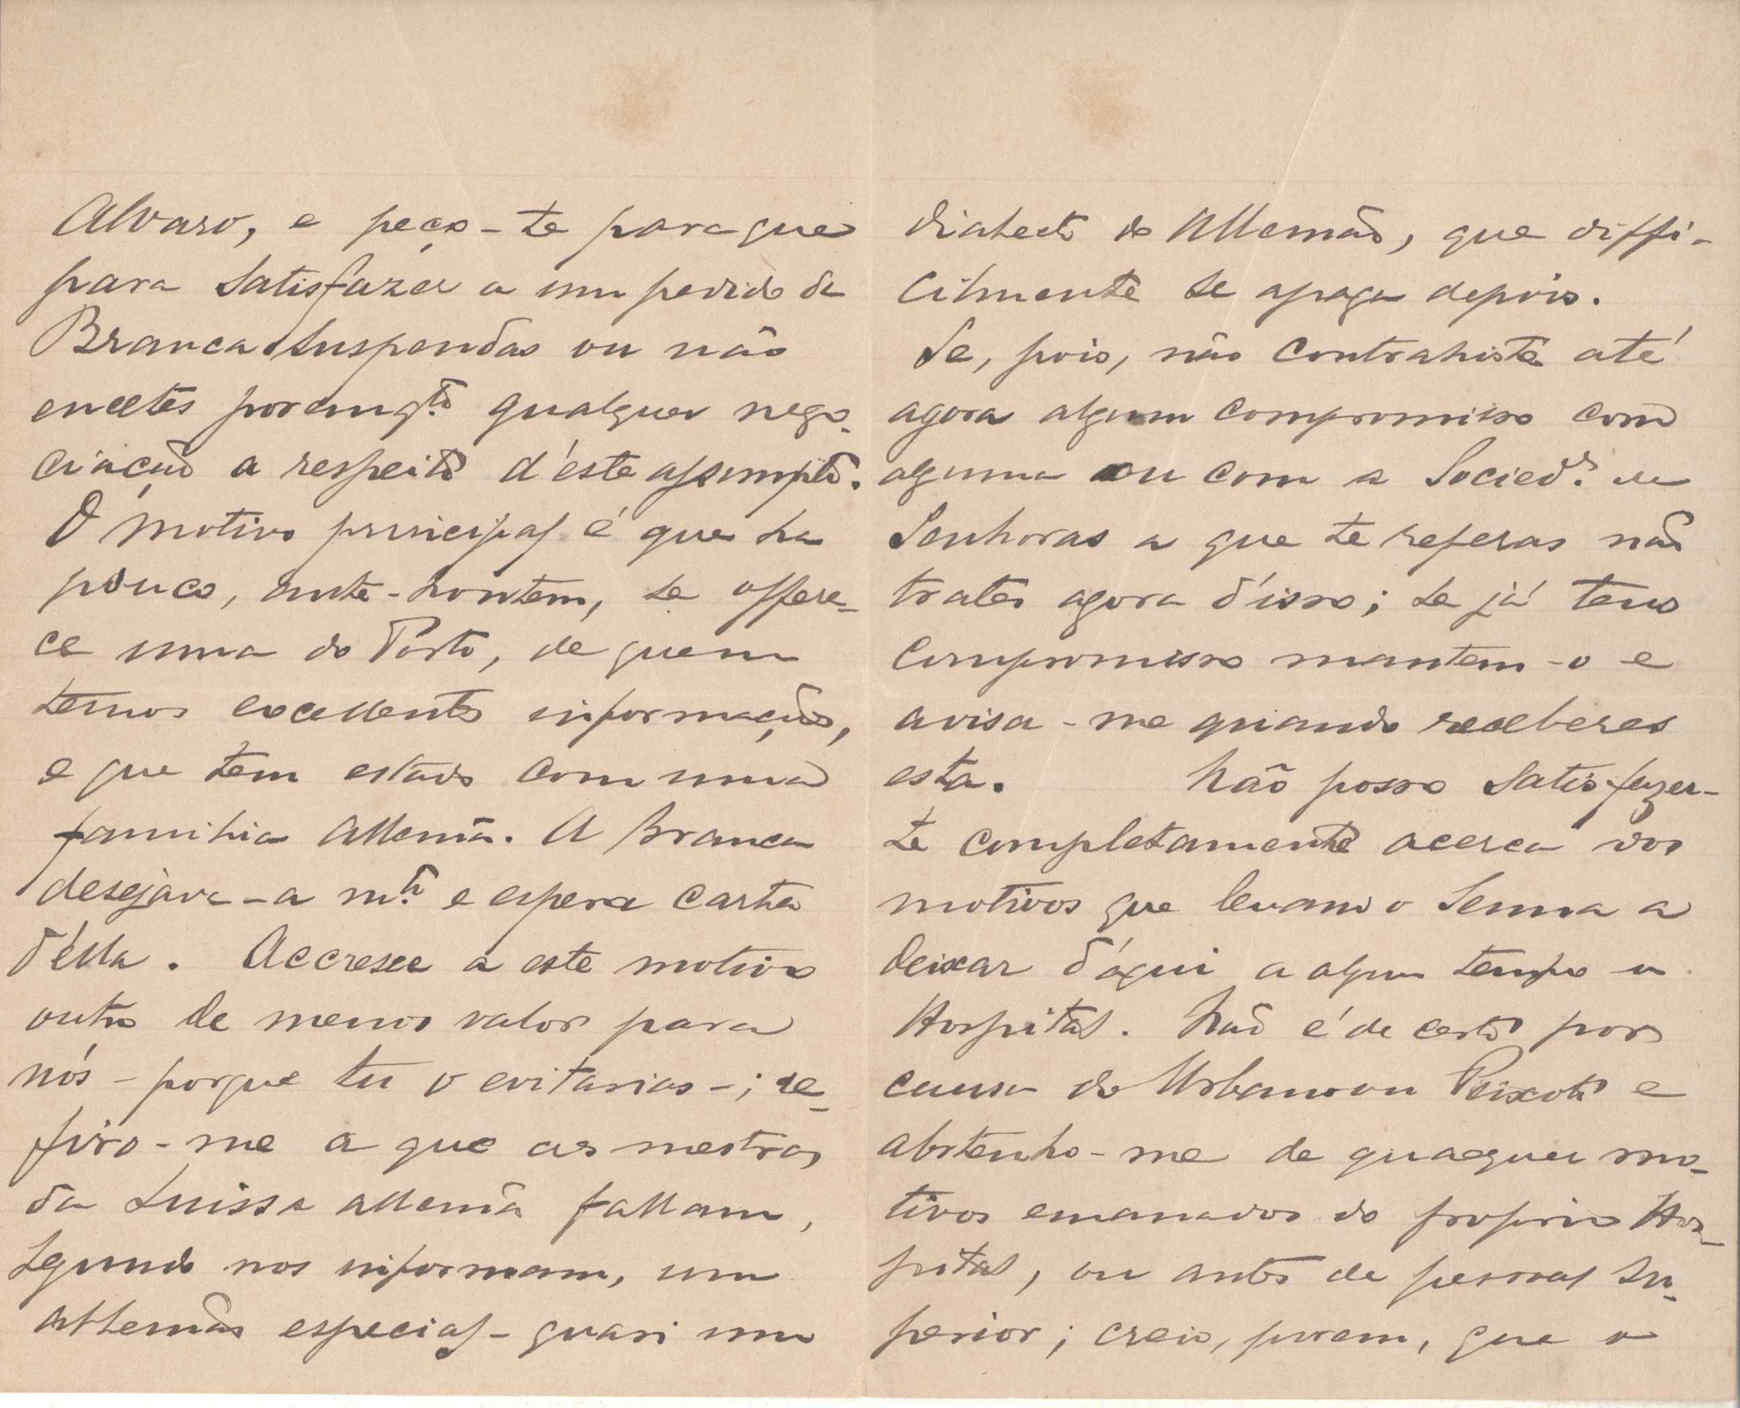 Alvaro, e peço-te para que
para satisfazer a um pedido da
Branca suspendas ou não
encetes por emq.to qualquer nego-
ciação a respeito d'este assumpto.
O motivo principal é que ha
pouco, ante-hontem, se offere-
ce uma do Porto, de quem
temos excellentes informações,
e que tem estado com uma
familia allemã. A Branca
desejava-a m.to e espera carta
d'élla. Accresce a este motivo
outro de menos valor para
nós - porque tu o evitarias -; re-
firo-me a que as mestras
da Suissa allemã fallam,
segundo nos informam, um
allemão especial - quasi um
dialecto do Allemão, que diffi-
cilmente se apaga depois.
Se, pois, não contrahiste até
agora algum compromisso com
alguma ou com a Socied.e de
Senhoras a que te referes não
trates agora d'isso; se já tens
compromisso mantem-o e
avisa-me quando receberes
esta. Não posso satisfazer-
te completamente acerca dos
motivos que levam o Senna a
deixar d'aqui a algum tempo o
Hospital. Não é de certo por
causa do Urbano ou Peixoto e
abstenho-me de quaequer mo-
tivos emanados do proprio Hos-
pital, ou antes de pessoal su-
perior; creio, porem, que o